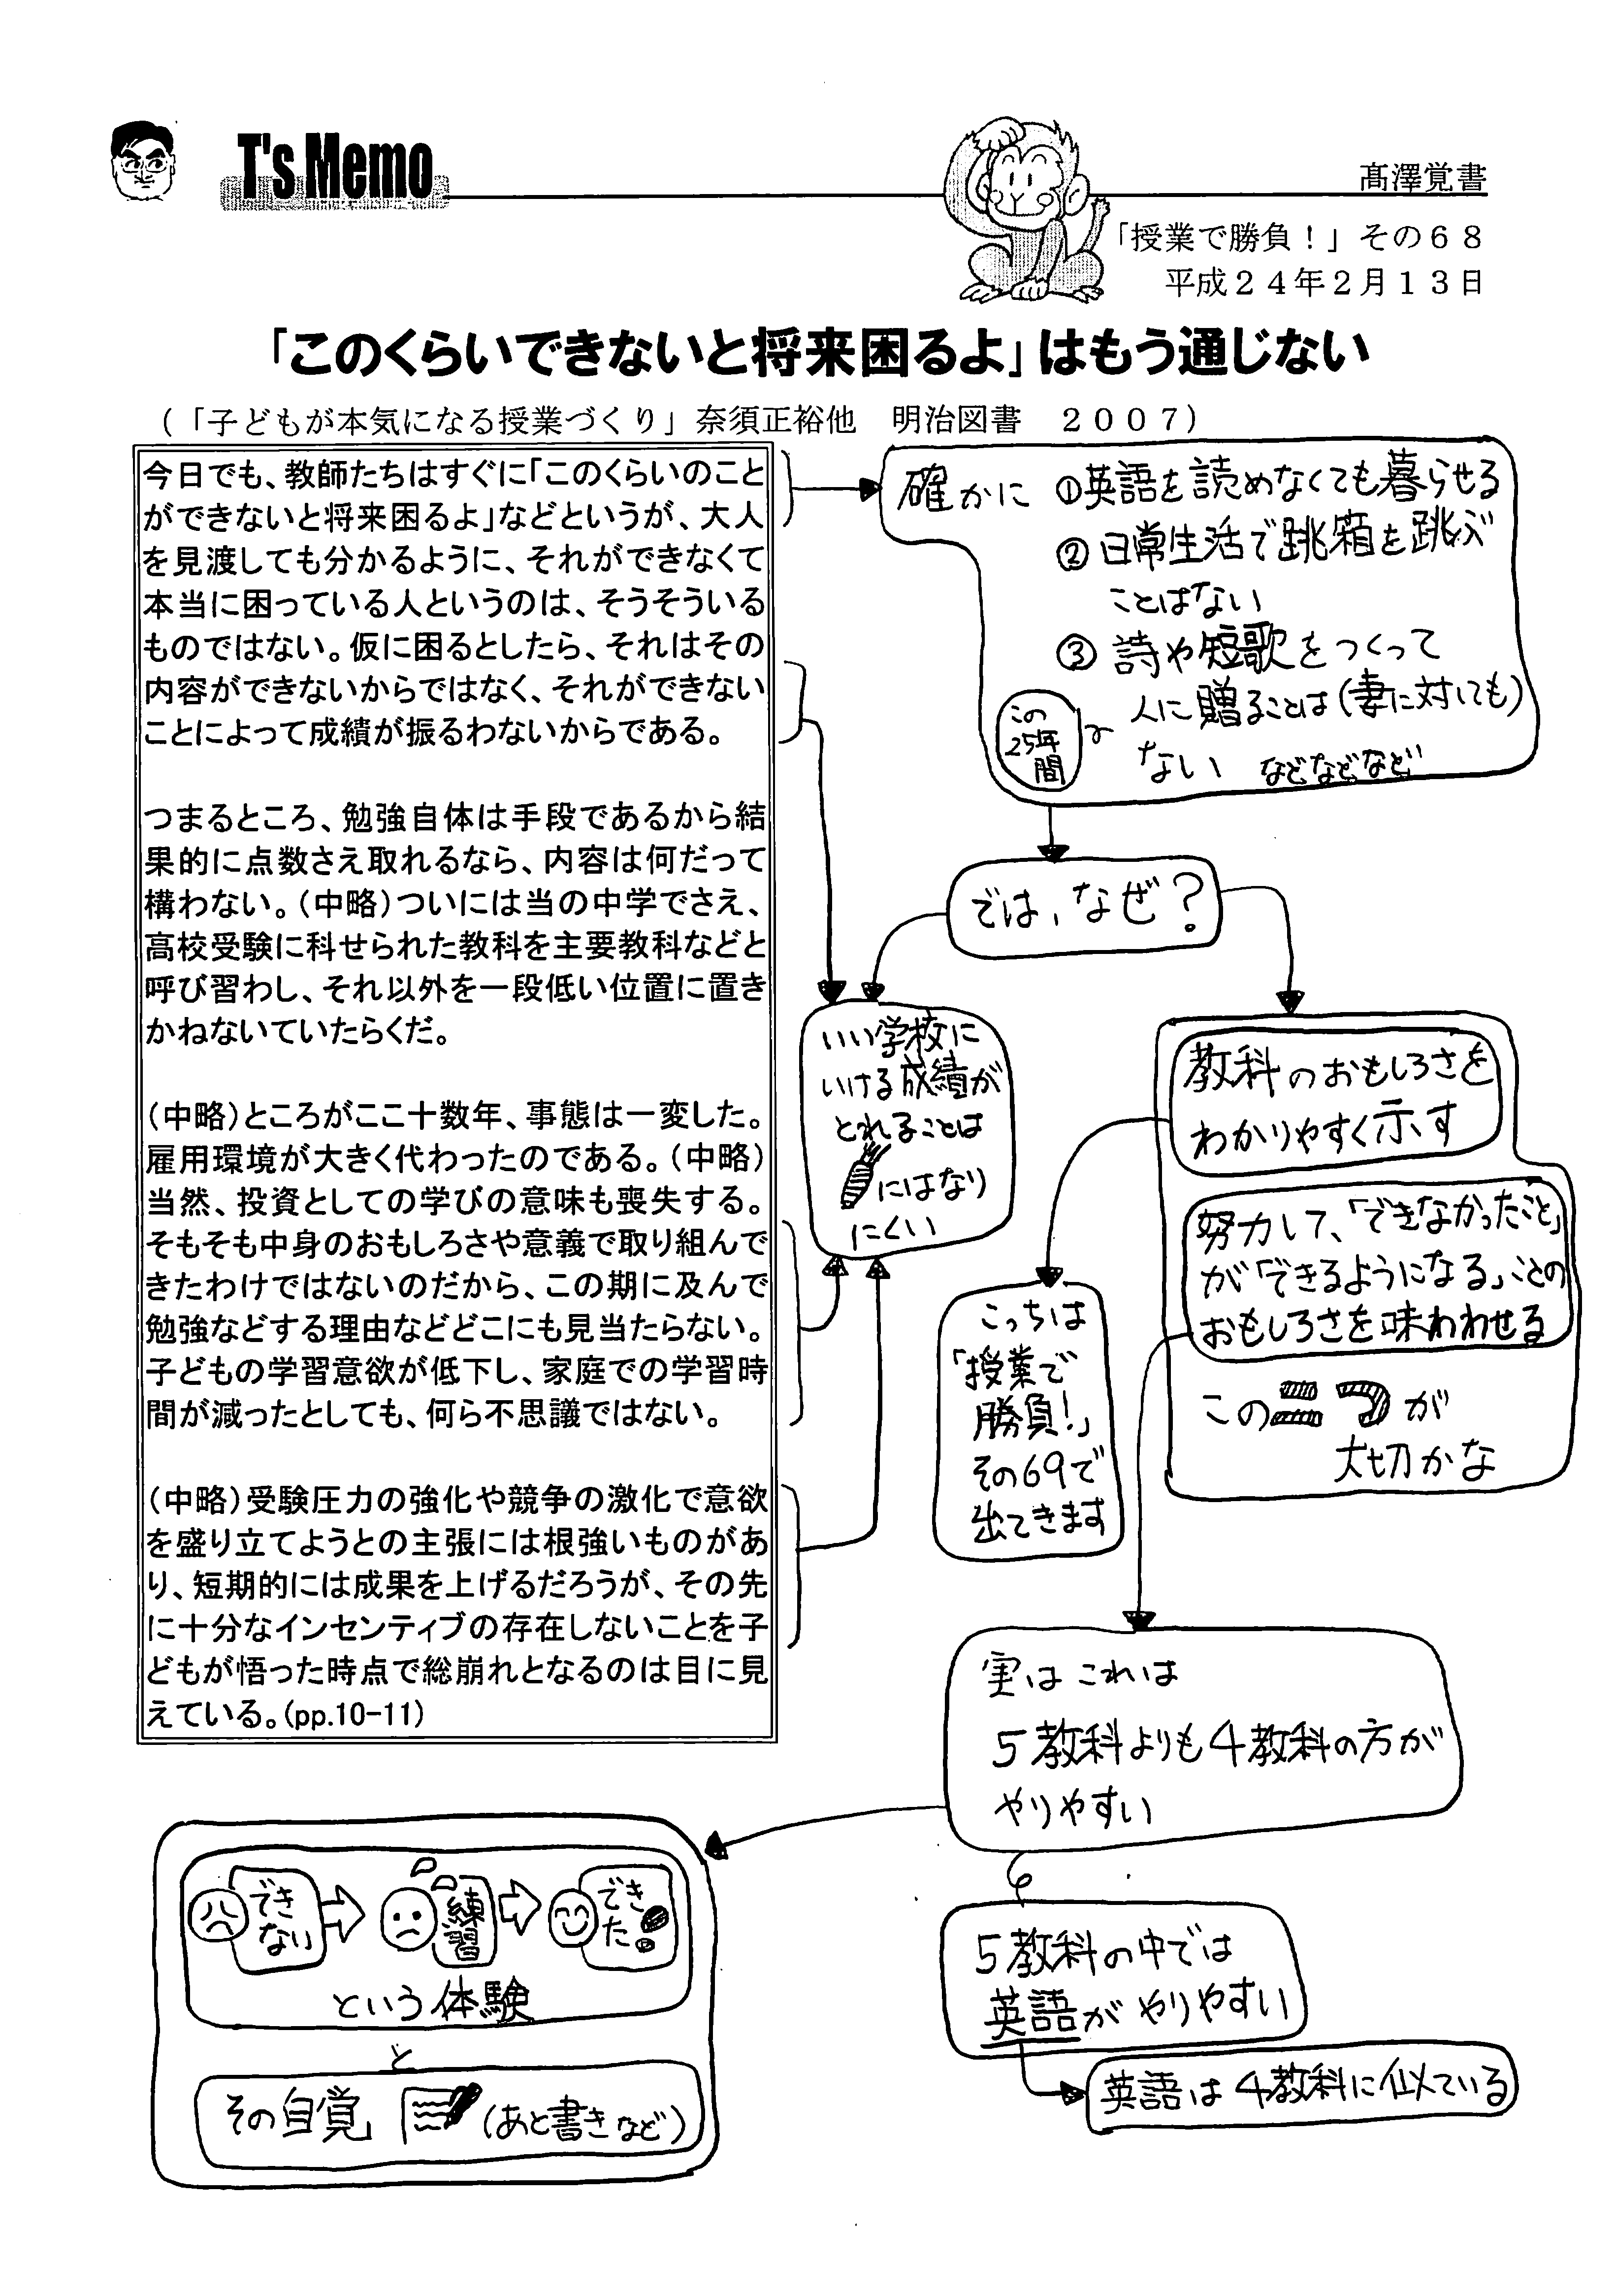 T's Memo
髙澤覚書
「授業で勝負！」その６８
平成２４年２月１３日
「このくらいできないと将来困るよ」はもう通じない
（「子どもが本気になる授業づくり」奈須正裕他　明治図書　２００７）
今日でも、教師たちはすぐに「このくらいのこと
ができないと将来困るよ」などというが、大人
を見渡しても分かるように、それができなくて
本当に困っている人というのは、そうそういる
ものではない。仮に困るとしたら、それはその
内容ができないからではなく、それができない
ことによって成績が振るわないからである。
つまるところ、勉強自体は手段であるから結
果的に点数さえ取れるなら、内容は何だって
構わない。（中略）ついには当の中学でさえ、
高校受験に科せられた教科を主要教科などと
呼び習わし、それ以外を一段低い位置に置き
かねないていたらくだ。
（中略）ところがここ十数年、事態は一変した。
雇用環境が大きく代わったのである。（中略）
当然、投資としての学びの意味も喪失する。
そもそも中身のおもしろさや意義で取り組んで
きたわけではないのだから、この期に及んで
勉強などする理由などどこにも見当たらない。
子どもの学習意欲が低下し、家庭での学習時
間が減ったとしても、何ら不思議ではない。
（中略）受験圧力の強化や競争の激化で意欲
を盛り立てようとの主張には根強いものがあ
り、短期的には成果を上げるだろうが、その先
に十分なインセンティブの存在しないことを子
どもが悟った時点で総崩れとなるのは目に見
えている。（pp.10-11）
確かに ①英語を読めなくても暮らせる
②日常生活で跳箱を跳ぶ
ことはない
③詩や短歌をつくって
人に贈ることは（妻に対しても）
ない などなどなど
この
25年
間
では、なぜ？
いい学校に
いける成績が
とれることは
にはなり
にくい
教科のおもしろさを
わかりやすく示す
努力して、「できなかったこと」
が「できるようになる」ことの
おもしろさを味わわせる
この二つが
大切かな
こっちは
「授業で
勝負！」
その69で
出てきます
実はこれは
5教科よりも4教科の方が
やりやすい
5教科の中では
英語がやりやすい
英語は4教科に似ている
でき
ない
練
習
でき
た！
という体験
と
その自覚 （あと書きなど）